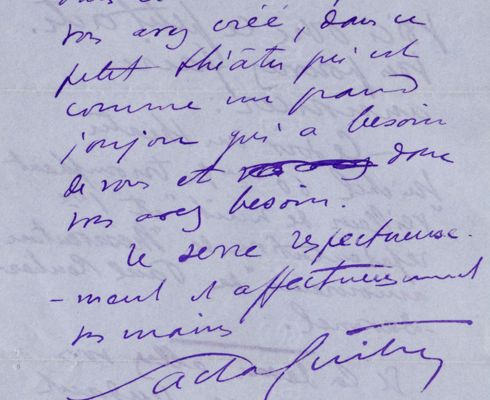 vous avez créé, dans ce
petit théâtre qui est
comme un grand
joujou qui a besoin
de vous et dont
vous avez besoin.
Je serre respectueuse-
-ment et affectueusement
vos mains
Sacha Guitry